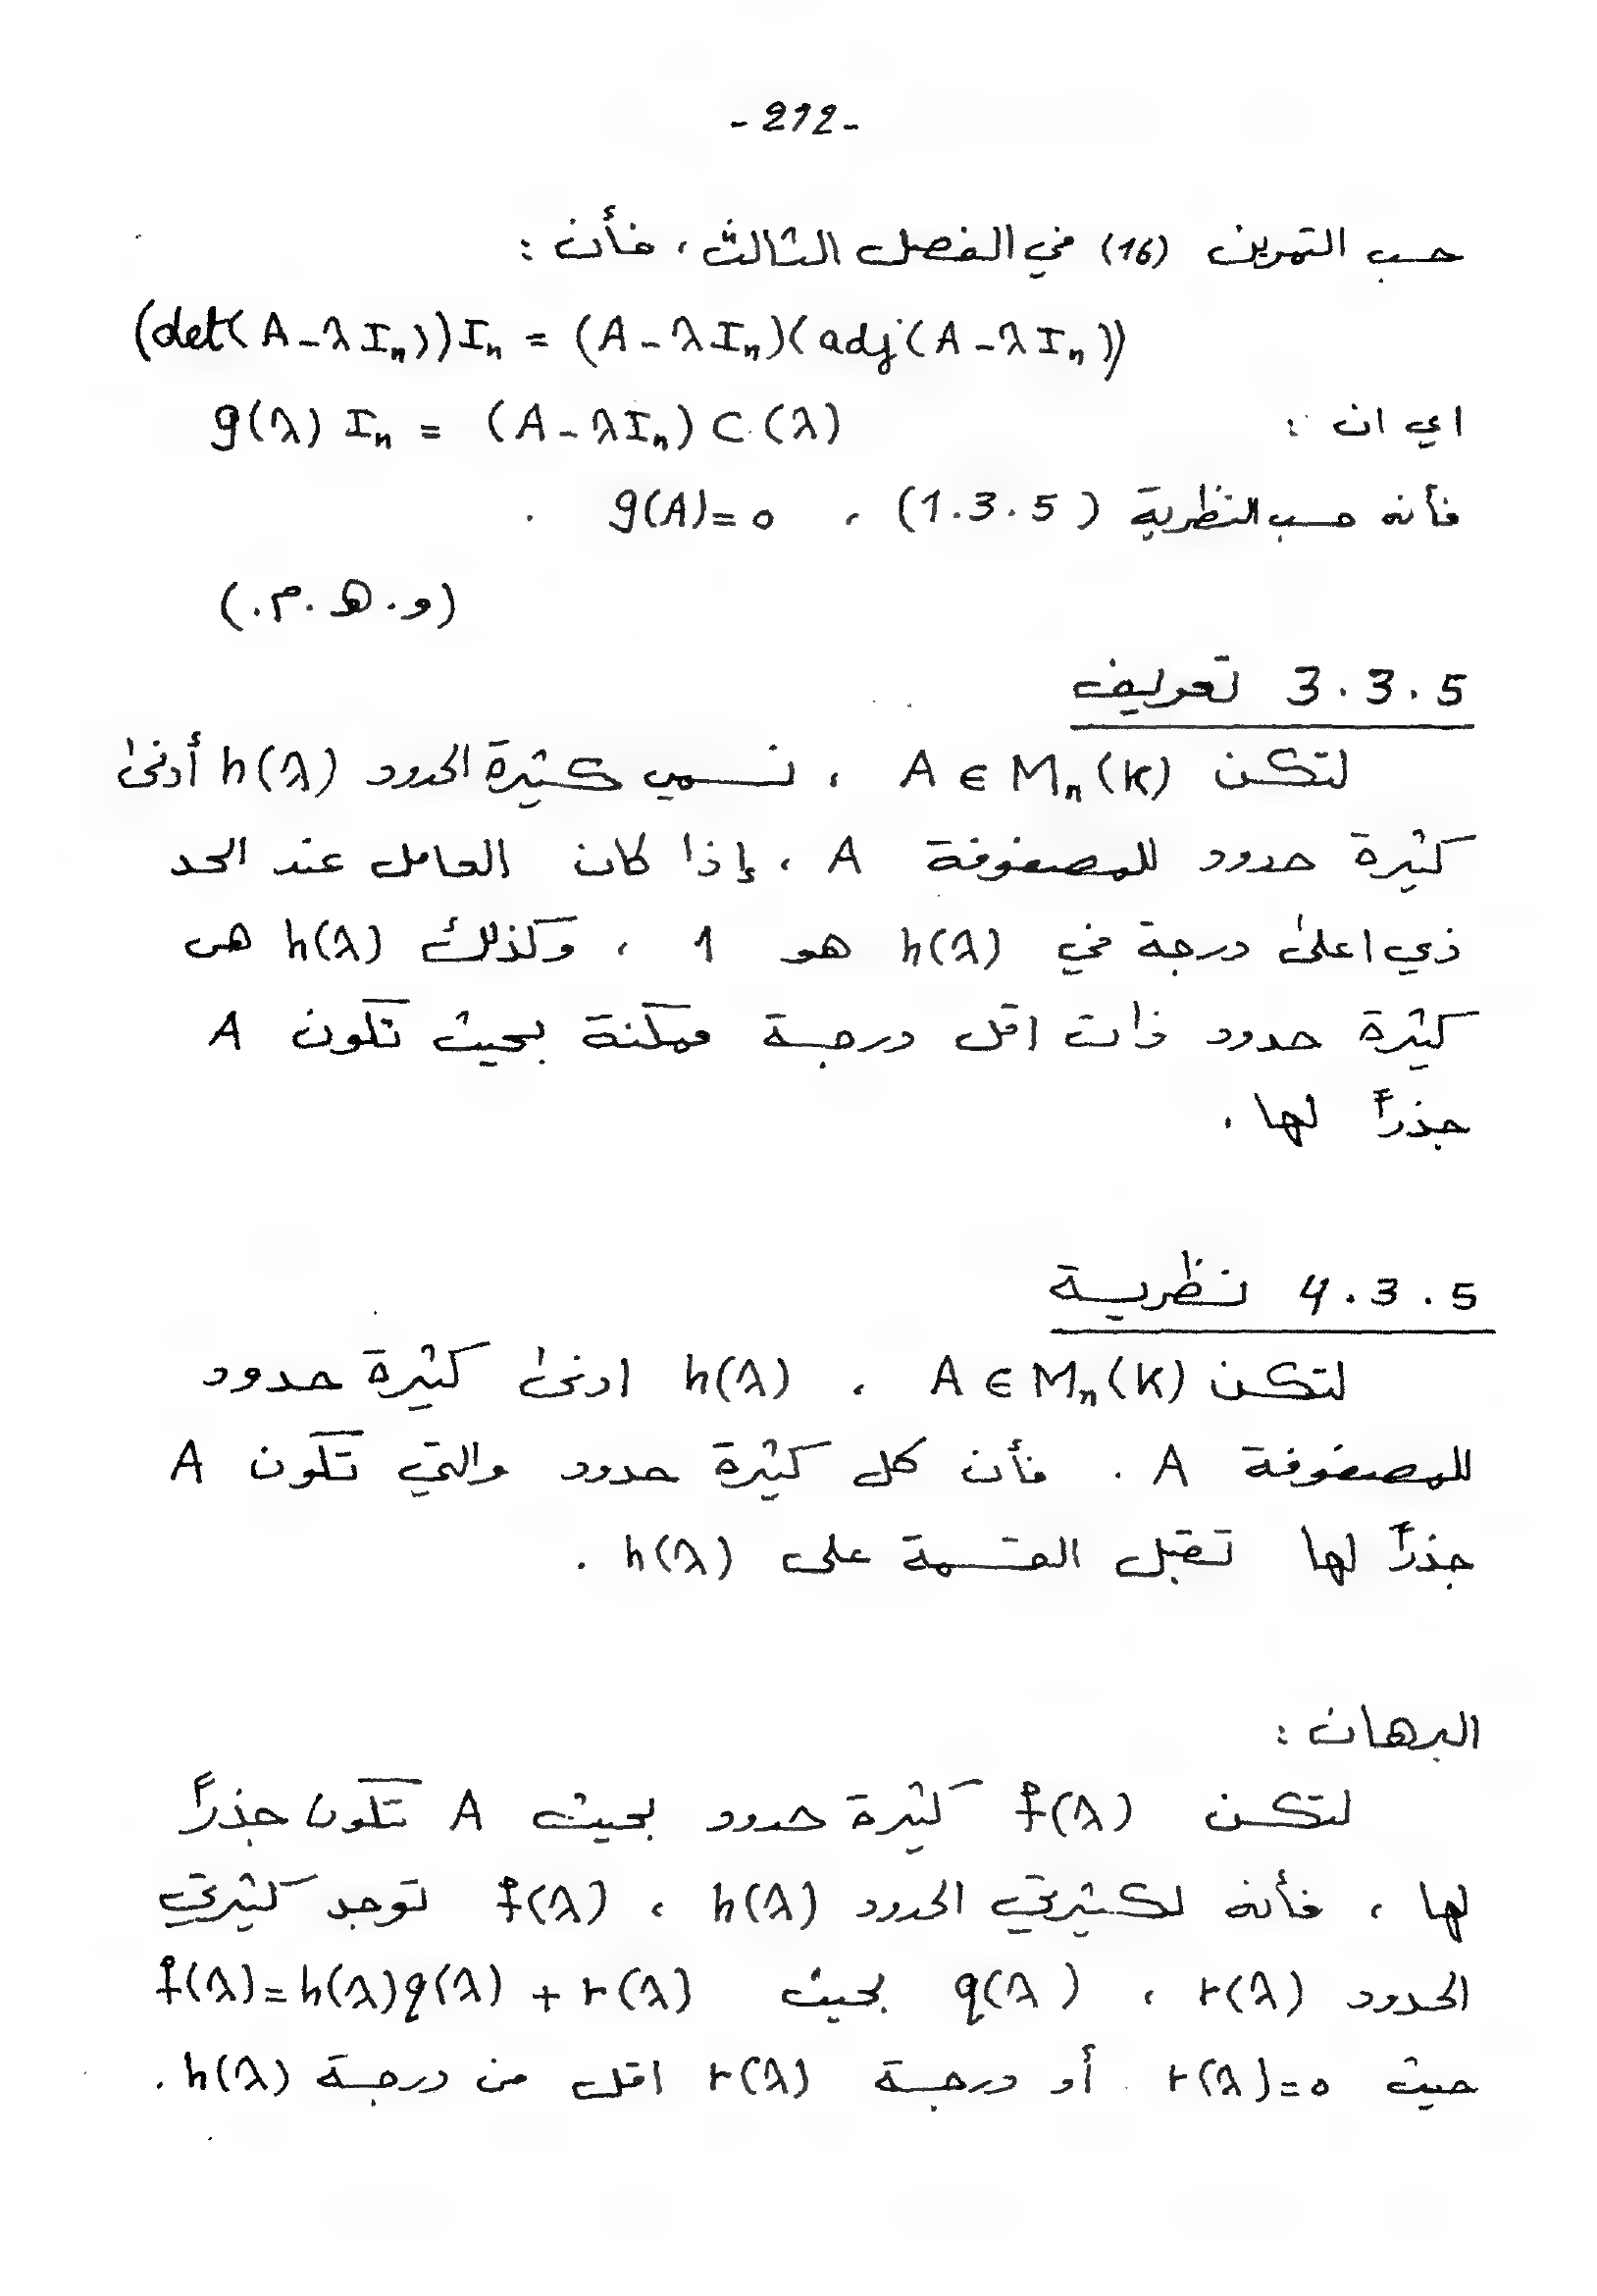 - 212 -
حسب التمرين (16) في الفصل الثالث ، فأن :
(det(A-λIₙ))Iₙ = (A-λIₙ)(adj(A-λIₙ))
اي ان : g(λ) Iₙ = (A-λIₙ) C(λ)
فأنه حسب النظرية (1.3.5) ، g(A)=0 .
(و.ه.م.)
3.3.5 تعريف
لتكن A ∈ Mₙ(K) ، نسمي كثيرة الحدود h(λ) أدنى
كثيرة حدود للمصفوفة A ، إذا كان العامل عند الحد
ذي اعلى درجة في h(λ) هو 1 ، وكذلك h(λ) هي
كثيرة حدود ذات اقل درجة ممكنة بحيث تكون A
جذراً لها .
4.3.5 نظرية
لتكن A ∈ Mₙ(K) ، h(λ) ادنى كثيرة حدود
للمصفوفة A . فأن كل كثيرة حدود والتي تكون A
جذراً لها تقبل القسمة على h(λ) .
البرهان :
لتكن f(λ) كثيرة حدود بحيث A تكون جذراً
لها ، فأنه لكثيرتي الحدود h(λ) ، f(λ) توجد كثيرتي
الحدود r(λ) ، q(λ) بحيث f(λ)=h(λ)q(λ)+r(λ)
حيث r(λ)=0 أو درجة r(λ) اقل من درجة h(λ) .